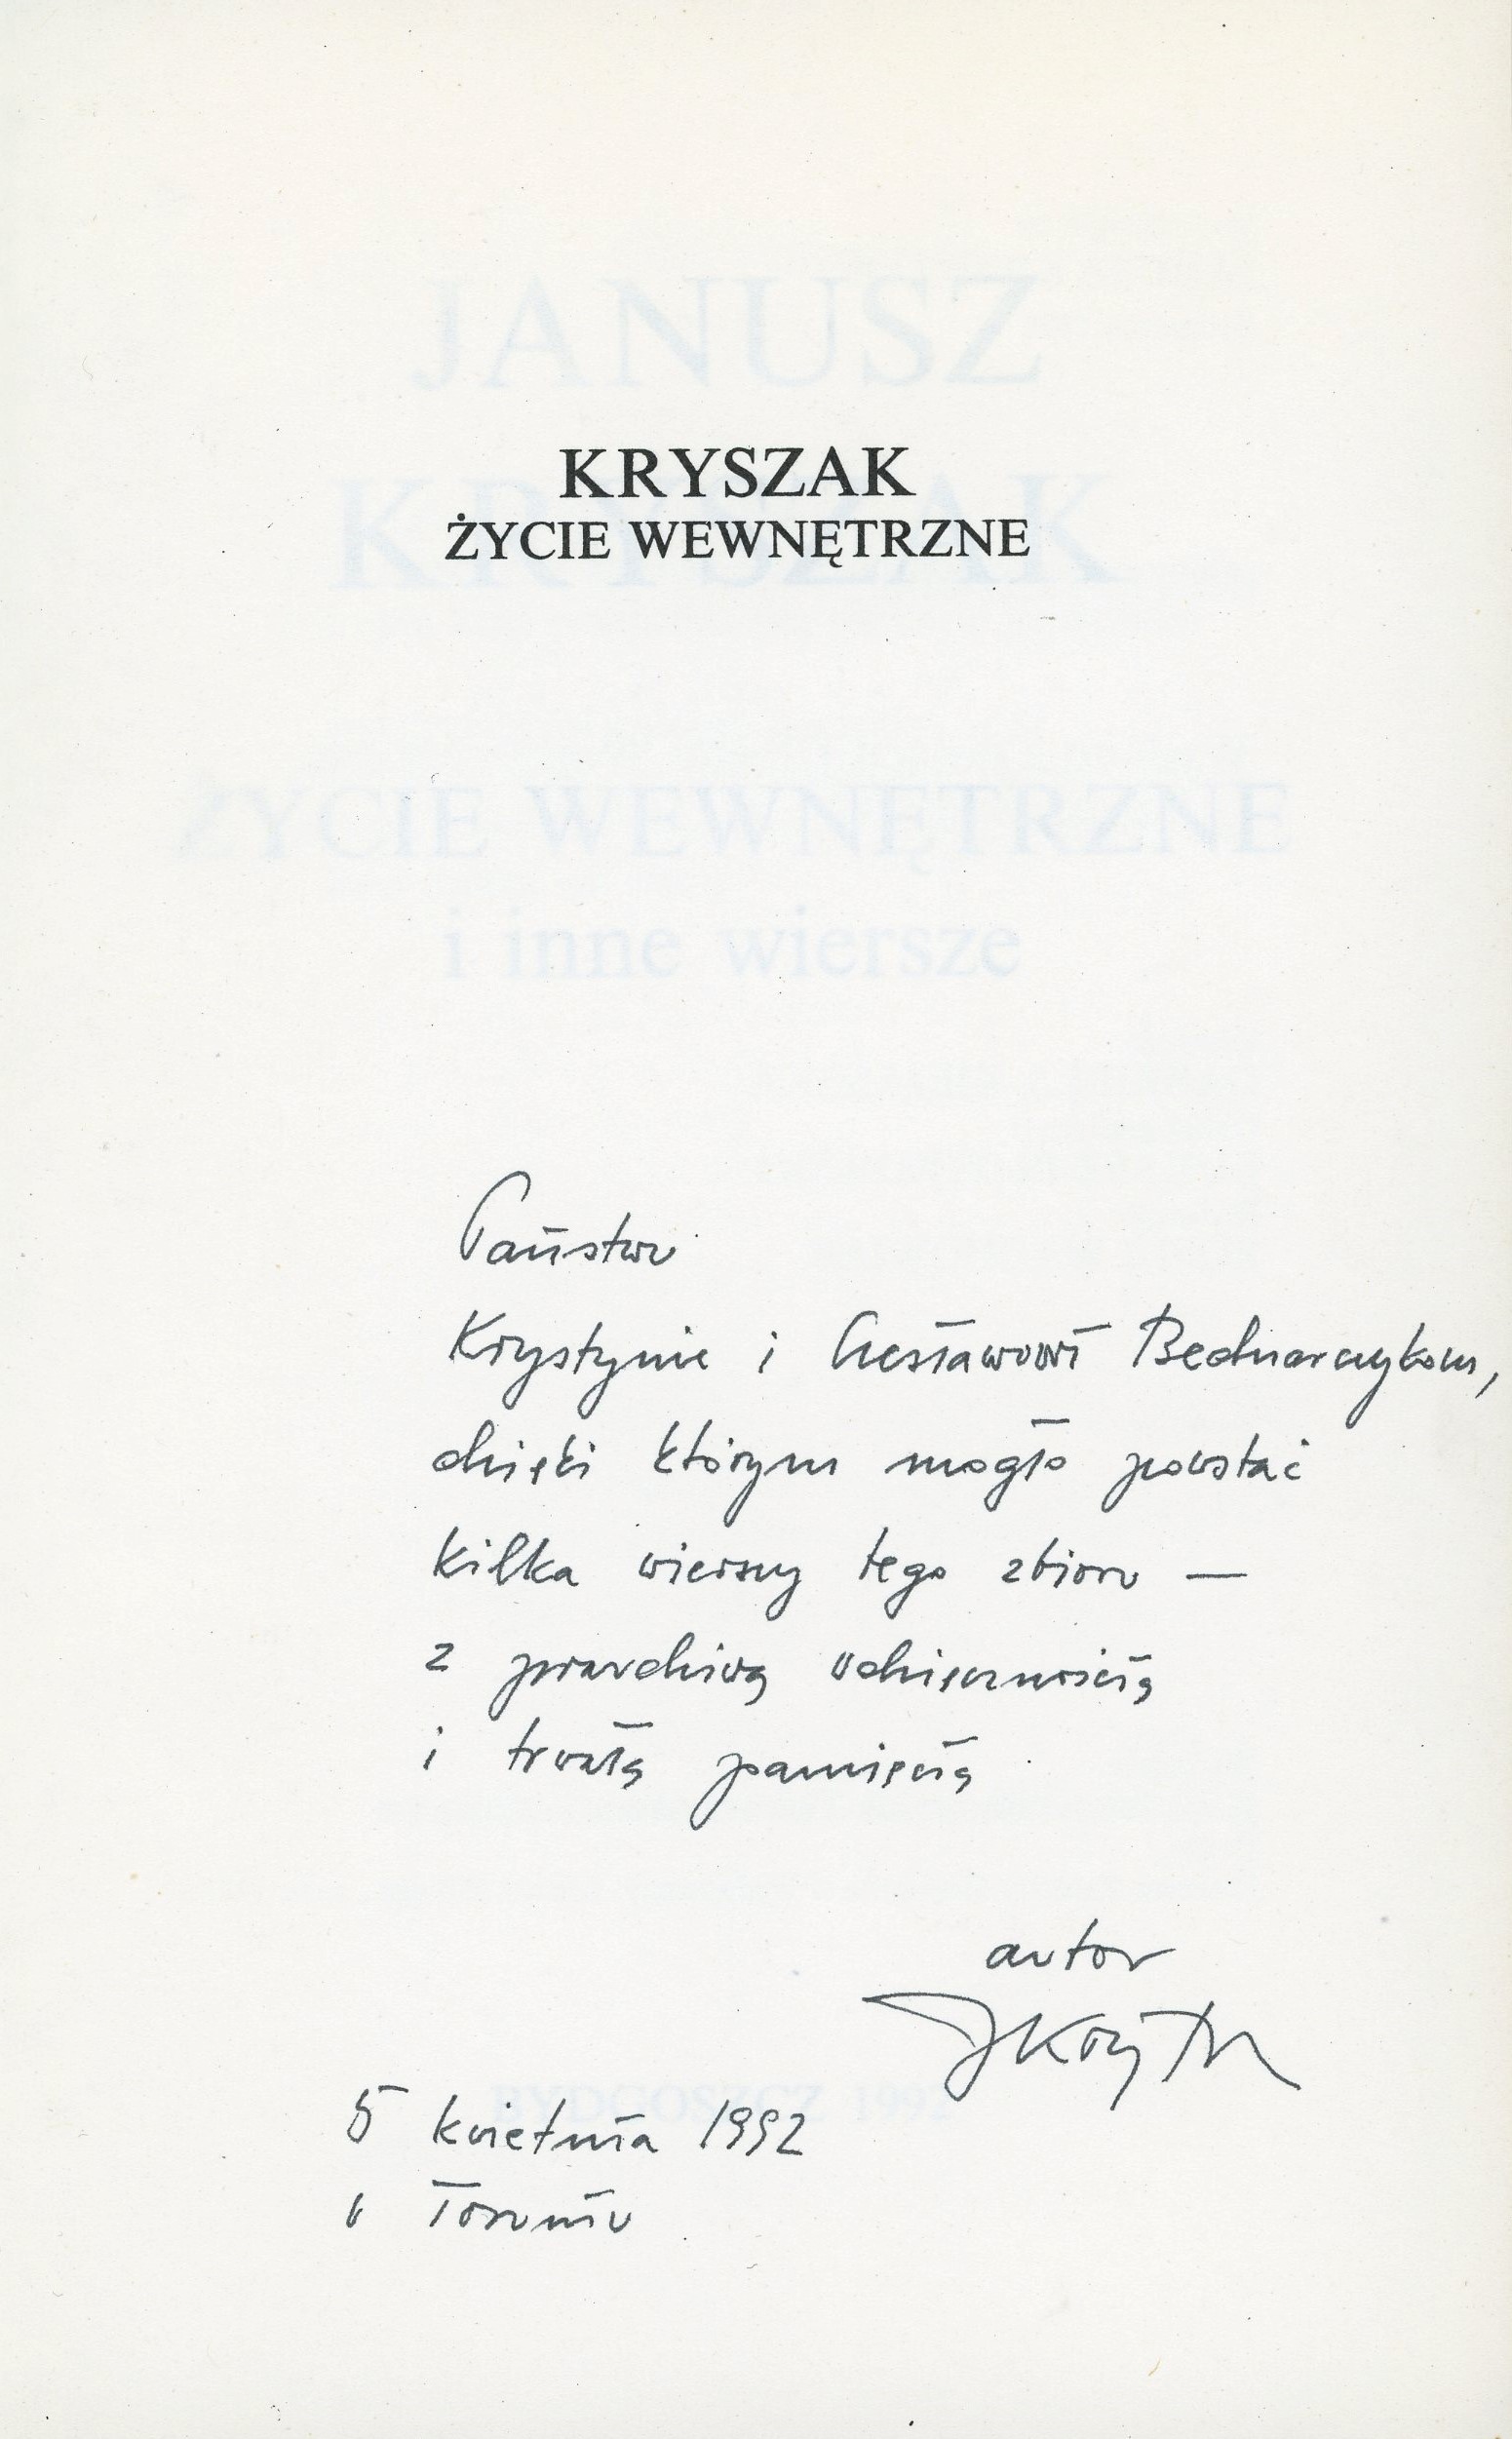 JANUSZ
KRYSZAK
KRYSZAK
ŻYCIE WEWNĘTRZNE
ŻYCIE WEWNĘTRZNE
i inne wiersze
Państwu
Krystynie i Czesławowi Bednarczykom,
dzięki którym mogło powstać
kilka wierszy tego zbioru —
z prawdziwą wdzięcznością
i trwałą pamięcią
autor
JKrysz
BYDGOSZCZ 1992
5 kwietnia 1992
w Toruniu